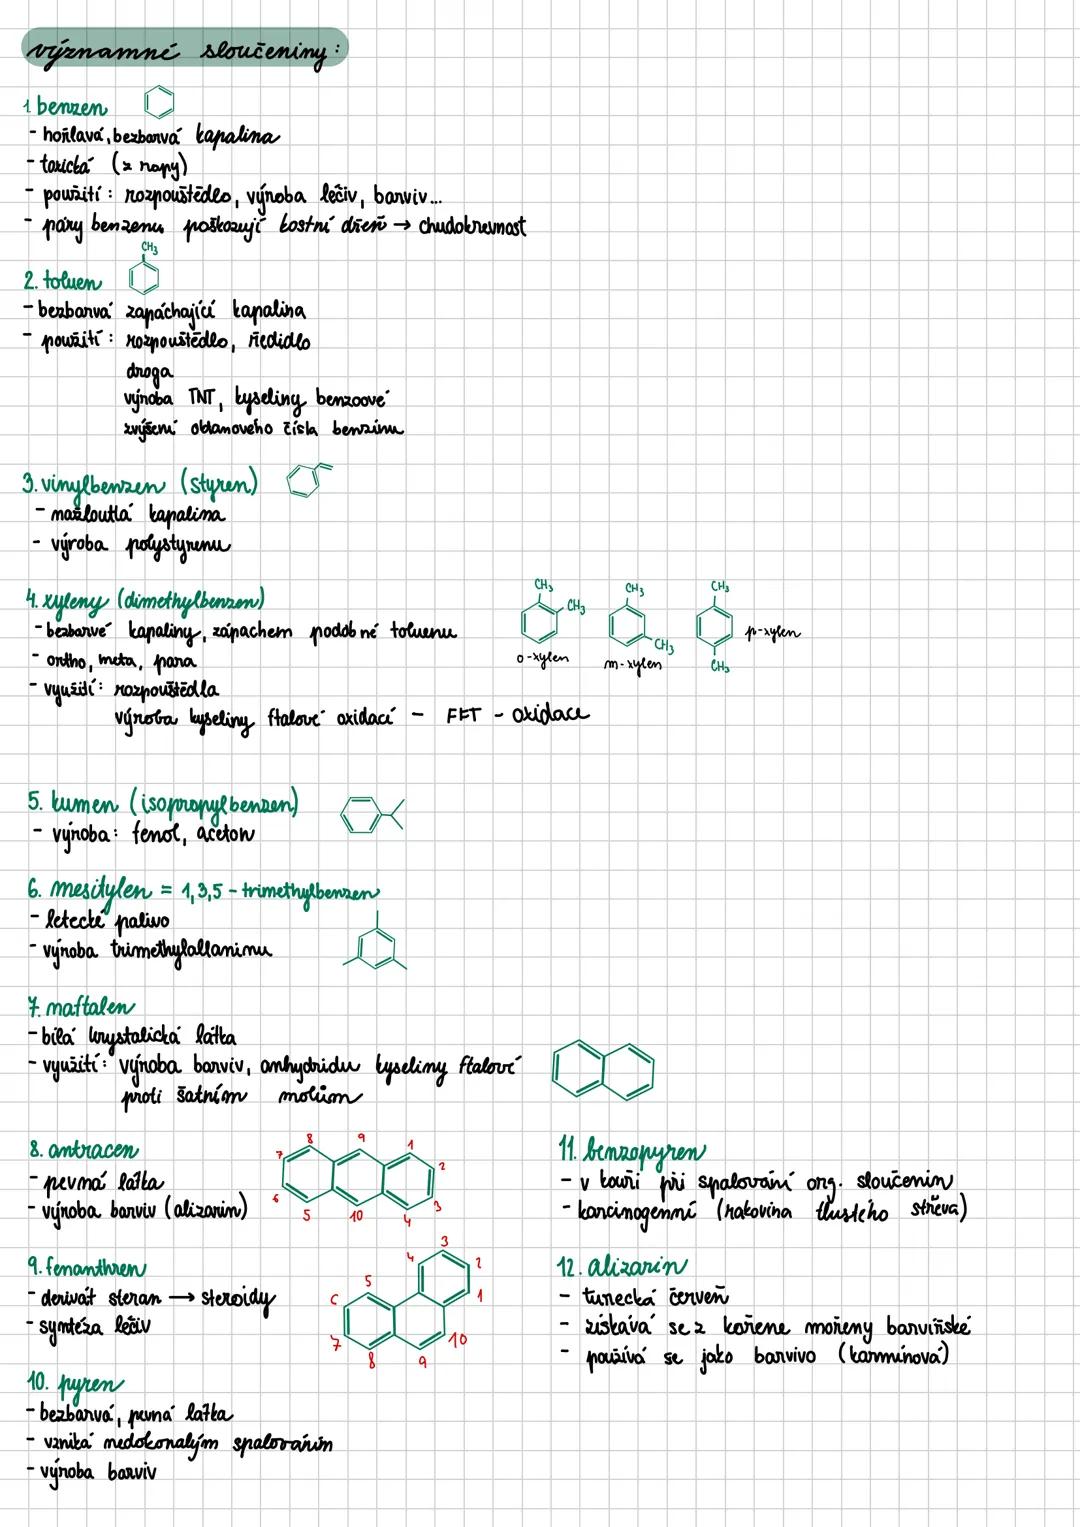 významné sloučeniny:
1. benzen
- hořlavá, bezbarvá kapalina
- toxická (z ropy)
- použití: rozpouštědlo, výroba léčiv, barviv...
- páry benzenu poškozují kostní dřeň → chudokrevnost
CH3
2. toluen
- bezbarvá zapáchající kapalina
- použití: rozpouštědlo, ředidlo
droga
výroba TNT, kyseliny benzoové
zvýšení oktanového čísla benzinu
3. vinylbenzen (styren)
- nažloutlá kapalina
- výroba polystyrenu
4. xyleny (dimethylbenzen)
- bezbarvé kapaliny, zápachem podobné toluenu
- ortho, meta, para
- využití: rozpouštědla
výroba kyseliny ftalové oxidací - FFT - oxidace
CH3 CH3 o-xylen
CH3 CH3 m-xylen
CH3 CH3 p-xylen
5. kumen (isopropylbenzen)
- výroba: fenol, aceton
6. mesitylen = 1,3,5 - trimethylbenzen
- letecké palivo
- výroba trimethylallaninu
7. naftalen
- bílá krystalická látka
- využití: výroba barviv, anhydridu kyseliny ftalové
proti šatním molům
8. antracen
- pevná látka
- výroba barviv (alizarin)
8 9 1
7 2
6 3
5 10 4
9. fenanthren
- derivát steran → steroidy
- syntéza léčiv
3
4 2
5 1
C
7 10
8 9
10. pyren
- bezbarvá, pevná látka
- vzniká nedokonalým spalováním
- výroba barviv
11. benzopyren
- v kouři při spalování org. sloučenin
- karcinogenní (rakovina tlustého střeva)
12. alizarin
- turecká červeň
- získává se z kořene mořeny barvířské
- používá se jako barvivo (karmínová)